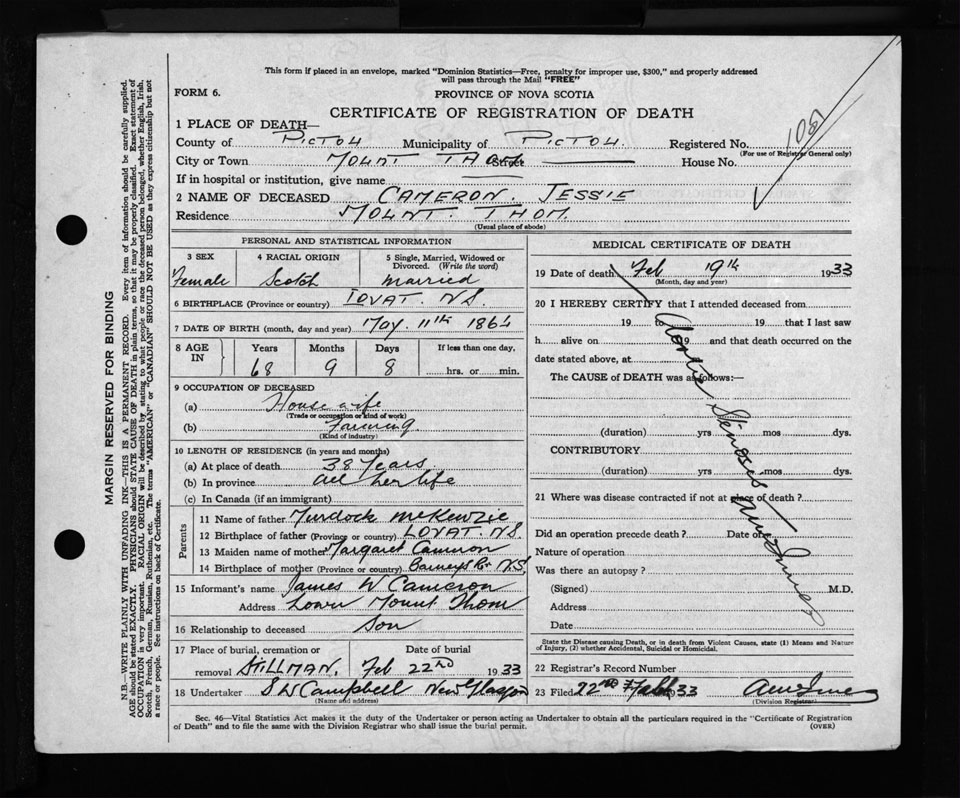 This form if placed in an envelope, marked "Dominion Statistics—Free, penalty for improper use, $300," and properly addressed
will pass through the Mail "FREE"
FORM 6.
PROVINCE OF NOVA SCOTIA
CERTIFICATE OF REGISTRATION OF DEATH
1 PLACE OF DEATH—
County of PICTOU Municipality of PICTOU. Registered No.
(For use of Registrar General only)
City or Town MOUNT THOM Street House No.
If in hospital or institution, give name
2 NAME OF DECEASED CAMERON. JESSIE
Residence MOUNT. THOM.
(Usual place of abode)
MARGIN RESERVED FOR BINDING
N.B.—WRITE PLAINLY WITH UNFADING INK—THIS IS A PERMANENT RECORD. Every item of information should be carefully supplied.
AGE should be stated EXACTLY. PHYSICIANS should STATE CAUSE OF DEATH in plain terms, so that it may be properly classified. Exact statement of
OCCUPATION is very important. RACIAL ORIGIN will be described by stating to what people or race the deceased person belonged, whether English, Irish,
Scotch, French, German, Russian, Ruthenian, etc. The terms "AMERICAN" or "CANADIAN" SHOULD NOT BE USED as they express citizenship but not
a race or people. See instructions on back of Certificate.
PERSONAL AND STATISTICAL INFORMATION
3 SEX
Female
4 RACIAL ORIGIN
Scotch
5 Single, Married, Widowed or
Divorced. (Write the word)
married
6 BIRTHPLACE (Province or country) LOVAT. N.S.
7 DATE OF BIRTH (month, day and year) May. 11th 1864
8 AGE IN
Years Months Days If less than one day,
68 9 8 hrs. or min.
9 OCCUPATION OF DECEASED
(a) House wife
(Trade or occupation or kind of work)
(b) Farming
(Kind of industry)
10 LENGTH OF RESIDENCE (in years and months)
(a) At place of death 38 Years
(b) In province all her life
(c) In Canada (if an immigrant)
Parents
11 Name of father Murdock McKenzie
12 Birthplace of father (Province or country) LOVAT. N.S.
13 Maiden name of mother Margaret Cameron
14 Birthplace of mother (Province or country) Barneys Rr N.S.
15 Informant's name James W Cameron
Address Lower Mount Thom
16 Relationship to deceased Son
17 Place of burial, cremation or removal Date of burial
STILLMAN. Feb 22nd 1933
18 Undertaker S W Campbell New Glasgow
(Name and address)
MEDICAL CERTIFICATE OF DEATH
19 Date of death Feb 19th 1933
(Month, day and year)
20 I HEREBY CERTIFY that I attended deceased from
19 to 19 that I last saw
h alive on 19 and that death occurred on the
date stated above, at
The CAUSE of DEATH was as follows:—
(duration) yrs mos dys.
CONTRIBUTORY
(duration) yrs. mos. dys.
21 Where was disease contracted if not at place of death?
Did an operation precede death? Date of
Nature of operation
Was there an autopsy?
(Signed) M.D.
Address
Date
State the Disease causing Death, or in death from Violent Causes, state (1) Means and Nature
of Injury, (2) whether Accidental, Suicidal or Homicidal.
22 Registrar's Record Number
23 Filed 22nd 33
(Division Registrar)
Sec. 46—Vital Statistics Act makes it the duty of the Undertaker or person acting as Undertaker to obtain all the particulars required in the "Certificate of Registration
of Death" and to file the same with the Division Registrar who shall issue the burial permit.
(OVER)